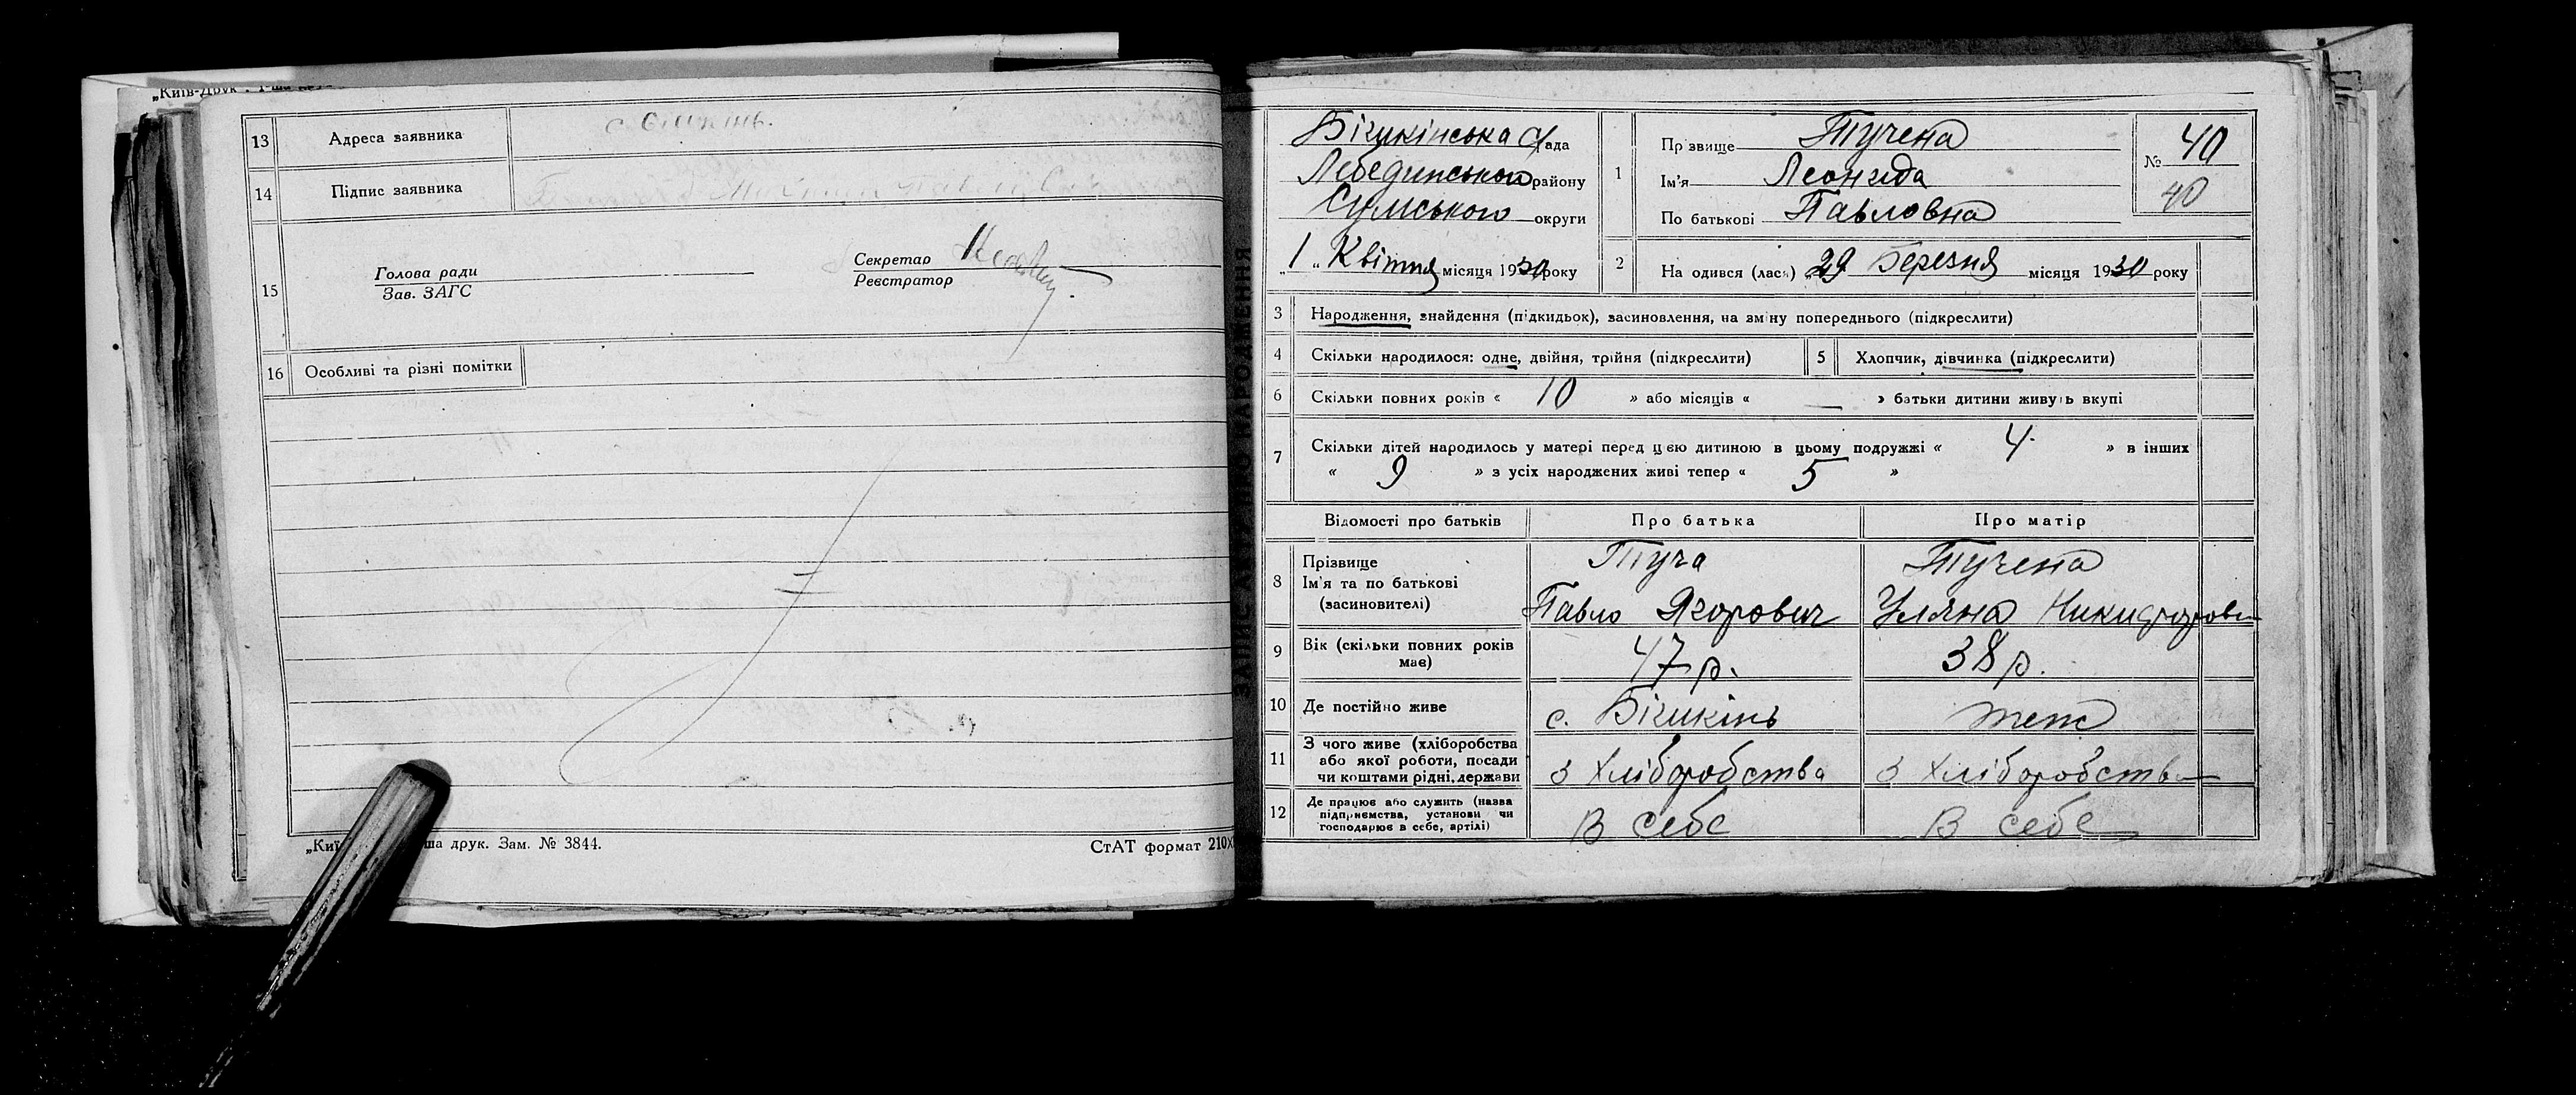 „Київ-Друк
13 Адреса заявника
14 Підпис заявника
15 Голова ради
Зав. ЗАГС
Секретар
Реєстратор
16 Особливі та різні помітки
ша друк. Зам. № 3844.
СтАТ формат 210х
Бішкінська Рада
Лебединського району
Сумського округи
„1" Квітня місяця 1930 року
1 Прізвище Тучена
Ім'я Леонида
По батькові Павловна
№ 40
40
2 Народився (лася) „29 Березня місяця 1930 року
3 Народження, знайдення (підкидьок), засиновлення, на зміну попереднього (підкреслити)
4 Скільки народилося: одне, двійня, трійня (підкреслити)
5 Хлопчик, дівчинка (підкреслити)
6 Скільки повних років « 10 » або місяців « — » батьки дитини живуть вкупі
7 Скільки дітей народилось у матері перед цією дитиною в цьому подружжі « 4 » в інших
« 9 » з усіх народжених живі тепер « 5 »
Відомості про батьків Про батька Про матір
8 Прізвище Туча Тучена
Ім'я та по батькові
(засиновителі) Павло Ягорович Уляна Никифоровн
9 Вік (скільки повних років
має) 47 р. 38 р.
10 Де постійно живе с. Бішкінь теж
11 З чого живе (хліборобства
або якої роботи, посади
чи коштами рідні, держави з Хліборобства з Хліборобства
12 Де працює або служить (назва
підприємства, установи чи
господарює в себе, артілі) В себе В себе